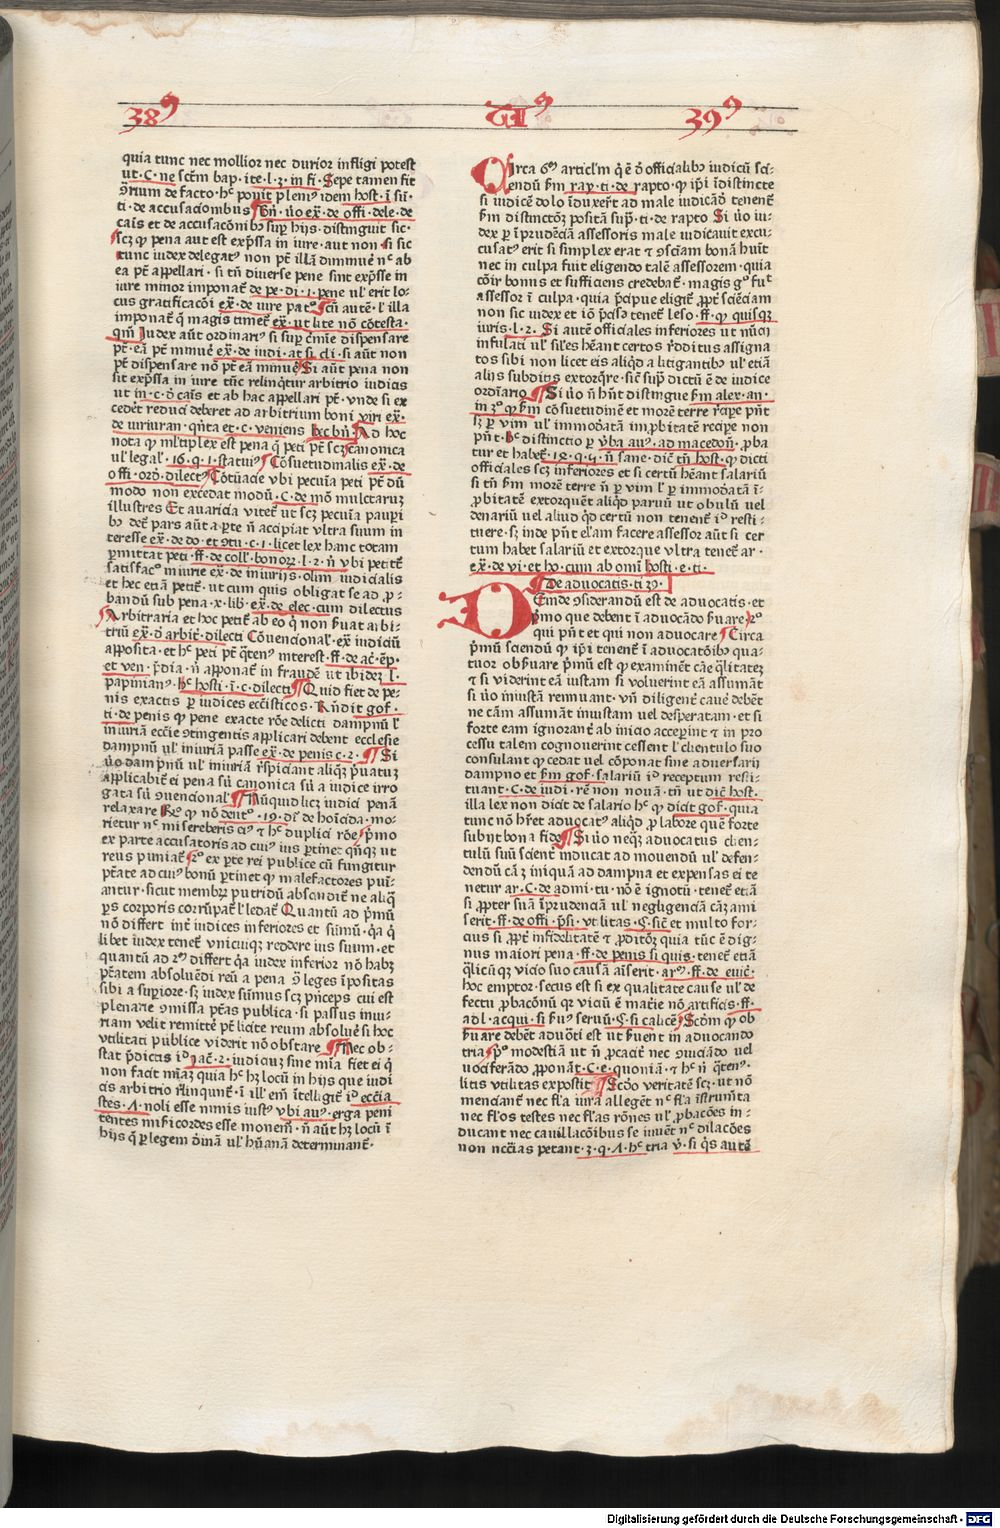 38⁹ Ti⁹ 39⁹
quia tunc nec mollior nec durior infligi potest
ut·C·ne sctm̄ bap·ite·l·2·in fi·Sepe tamen fit
ꝯrium de facto·hͨ ponit pleniꝰ idem host·ī sū·
ti·de accusacionibus ¶ Bn̄·ůo ex̄·de offi·dele·de
cāis et de accusacōnibꝫ supͬ hijs·distinguit sic·
scꝫ ꝙ pena aut est exp̄ssa in iure·aut non·si sic
tunc iudex delegatꝰ non pt̄ illā diminuē nͨ ab
ea pt̄ appellari·si tn̄ diverse pene sint exp̄sse in
iure minoꝛ imponat̄ de pe·di·1·pene ul' erit lo-
cus gratificacōi ex̄·de iure patꝰ Cū aut̄·l'illa
imponat̄ ꝙ magis timet̄ ex̄·ut lite nō ctesta·
qm̄ Iudex aūt ordinariꝰ si supͬ cm̄ie dispensare
pt̄·eā pt̄ minuē ex̄·de iudi·at si cli·si aūt non
pt̄ dispensare nō pt̄ eā minuē Si aūt pena non
sit exp̄ssa in iure tūc relinq̄tur arbitrio iudicis
ut in·c·d̄ cāis et ab hac appellari pt̄·vnde si ex
cedēt reduci deberet ad arbitrium boni viri ex̄·
de iuriuran·qn̄ta et·c·veniens hec bn̄·Ad hoc
nota ꝙ ml'tiplex est pena q̄ peti pt̄ scꝫ canonica
ul' legal'·16·q·1·statuiꝰ ¶ Cōsuetudinalis ex̄·de
offi·ord̄·dilectꝰ Cōtūacie vbi pecūia peti pt̄ dū
modo non excedat modū·C·de mō mulctaruꝫ
illustres Et avaricia vitet̄ ut scꝫ pecūia paupͥi
bꝫ det̄ pars aūt a pte n̄ accipiat vltra suum in
teresse ex̄·de do·et ꝯtu·c·1·licet lex hanc totam
p̱mittat peti·ff·de coll'·bonoꝝ·l·2·n̄ vbi petit̄
satisfac° iniurie ex̄·de iniurijs·olim iudicialis
et hec etiā petit̄·ut cum quis obligat se ad ꝓ-
bandū sub pena·x·lib·ex̄·de elec·cum dilectus
Arbitraria et hoc petit̄ ab eo q̄ non ẜuat arbi-
triū ex̄·d̄ arbit̄·dilecti Cōuencional'·ex̄ iudiciū
apposita·et hͨ peti pt̄ q̄tenꝰ interest·ff·de ac̄·ēp·
et ven·p̄dia·n̄ apponat̄ in fraudē ut ibideꝫ l·
papinianꝰ·hͨ hosti·ī·c·dilecti ¶ Quid fiet de pe-
nis exactis p̱ iudices ecc̄isticos·Rn̄dit gof·
ti·de penis ꝙ pene exacte rōe delicti dampnū l'
iniuriā ecc̄ie ꝯtingentis applicari debent ecclesie
dampnū ul' iniuriā passe ex̄·de penis c·2·¶ Si
ůo dampnū ul' iniuriā r̄spiciant aliqͣꝫ p̄uatuꝫ
applicabit̄ ei pena sū canonica sū a iudice irro
gata sū ꝯuencional' ¶ Nūquid licꝫ iudici penā
relaxare R̄ ꝙ nō dent°·19·di' de hoīcida·mo-
rietur nͨ misereberis eiꝰ et hͨ duplici rōe·p̄mo
ex parte accusatoris ad cuiꝰ ius p̱tinet qn̄qꝫ ut
reus puniat̄ 2° ex p̱te rei publice cū fungitur
ptāte ad cuiꝰ bonū p̱tinet ꝙ malefactores puī-
antur·sicut membꝝ putridū abscindit̄ ne aliq̄
ps corporis corrūpat̄ l' ledat̄ Quantū ad p̄mū
nō differt int̄ iudices inferiores et sūmū·qͣ q̄
libet iudex tenet̄ vnicuiqꝫ reddere ius suum·et
quantū ad 2ᵐ differt qͣ iudex inferior nō habꝫ
ptātem absoluēdi reū a pena ꝯ leges īpositas
sibi a sup̱iore·sꝫ iudex sūmus scꝫ p̄nceps cui est
plenarie ꝯmissa ptās publica·si passus iniu-
riam velit remitte pt̄ licite reum absoluē si hoc
utilitati publice viderit nō obstare ¶ Nec ob-
stat p̄dictis id iac̄·2·iudiciuꝫ sine mīa fiet ei q̄
non facit mīaꝫ quia hͨ hꝫ locū in hijs que iudi
cis arbitrio r̄linqunt̄·ī ill' em̄ ītelligit̄ id eccia
stes·Λ·noli esse nimis iustꝰ vbi auꝰ·erga peni
tentes misͥicordes esse monem̄·n̄ aūt hꝫ locū ī
hijs q̄ p̱ legem diuinā ul' hūanā determinant̄·
Circa 6ᵐ articl'm q̄ ē d̄ officialibꝫ iudiciū sci-
endū ẜm rap·ti·de rapto·ꝙ ip̄i īdistincte
si iudicē dolo īduxer̄t ad male iudicādū tenent̄
ẜm distinctōꝫ positā supͣ·ti·de rapto Si ůo iu-
dex p̱ īprudēciā assessoris male iudicauit excu-
satꝰ erit si simplex erat ⁊ ꝯsciam bonā huīt
nec in culpa fuit eligendo talē assessorem·quia
cōir bonus et sufficiens credebat̄·magis gͦ fuᵗ
assessor ī culpa·quia p̄cipue eligit̄ ꝓpt̄ sciēciam
non sic iudex et iō p̄cise tenet̄ leso·ff·ꝙ quisqꝫ
iuris·l·2·Si autē officiales inferiores ut nūcij
infulati ul' sil'es hēant certos r̄dditus assigna
tos sibi non licet eis aliq̄d a litigantibꝫ ul' etiā
alijs subditis extorq̄re·sic̄ supͣ dictū ē de iudice
ordīario ¶ Si ůo n̄ hn̄t distingue ẜm alex·an·
in 3°·ꝙ ẜm cōsuetudinē et morē terre rāpe pn̄t
sꝫ p̱ vim ul' immodātā im̱ꝓbitatē recipe non
pn̄t·hͨ distinctio p̱ ůba auꝰ·ad macedon̄·ꝓba
tur et habet̄·12·q·4·n̄ sane·dic̄ tn̄ host·ꝙ dicti
officiales scꝫ inferiores et si certū hēant salariū
si tn̄ ẜm morē terre n̄ p̱ vim l' p̱ immodatā ī-
ꝓbitatē extorquēt aliq̄d paruū ut obulū uel
denariū uel aliud q̄d certū non tenent̄ id resti-
tuere·sꝫ inde pn̄t el'am facere assessor aūt si cer
tum habet salariū et extorque vltra tenet̄ ar·
ex̄·de vi·et ho·cum ab omī hosti·e·ti·
¶ De aduocatis·ti 39·
DEinde ꝯsiderandū est de aduocatis·et
p̄mo que debent ī aduocādo ẜuare·2°
qui pn̄t et qui non aduocare ¶ Circa
p̄mū sciendū ꝙ ip̄i tenent̄ ī aduocatōibꝫ qua-
tuor obẜuare p̄mū est ꝙ examinēt cāe q̄litateꝫ
⁊ si viderint eā iustam si voluerint eā assumāt
si ůo iniustā rennuant·vn̄ diligent̄ cauē debēt
ne cām assumāt iniustam uel desperatam·et si
forte eam ignorant̄ ab inicio accep̱int ⁊ in pro
cessu talem cognouerint cessent l' clientulo suo
consulant ꝙ cedat vel cōponat sine aduersarij
dampno et ẜm gof·salariū id receptum resti-
tuant·C·de iudi·rē non nouā·tn̄ ut dic̄ host·
illa lex non dicit de salario hͨ ꝙ dicit gof·quia
tunc nō hēt aduocatꝰ aliq̄d ꝓ labore quē forte
subijt bona fide ¶ Si ůo neqꝫ aduocatus clien-
tulū suū scient̄ inducat ad mouendū ul' defen-
dendū cāꝫ iniquā ad dampna et expensas ei te
netur ar·C·de admi·tu·nō ē ignotū·tenet̄ etiā
si ꝓpter suā īprudenciā ul' negligenciā cāꝫ ami
serit·ff·de offi·p̄si·vt litas·C·sic̄ et multo for-
cius si ꝓpt̄ infidelitatē ⁊ ꝓditōꝫ quia tūc ē dig-
nus maiori pena·ff·de penis si quis·tenet̄ etiā
q̄licūqꝫ vicio suo causā aīserit·arꝰ·ff·de euic̄·
hoc emptor·secus est si ex qualitate cause ul' de
fectu ꝓbacōnū qꝛ viciū ē mat̄ie nō artificis·ff·
ad l·acqui·si ẜuꝰ seruū·C·si calicē·Scdm ꝙ ob
ẜuare debēt aduōti est ut ẜuent in aduocando
tria p° modestiā ut n̄ ꝓcacit̄ nec ꝯuiciādo uel
uociferādo ꝓponāt·C·e·quoniā·⁊ hͨ n̄ q̄tenꝰ·
litis vtilitas exposcit ¶ Scdo veritatē scꝫ·ut nō
menciant̄ nec fl'a iura allegēt nͨ fl'a īstrumīta
nec fl'os testes nec fl'as rōnes ul' ꝓbacōes in-
ducant nec cauillacōibus se iuuēt nͨ dilacōes
non nec̄ias petant·3·q·Λ·hͨ tria ꝟ·si q̄s autē
Digitalisierung gefördert durch die Deutsche Forschungsgemeinschaft - DFG